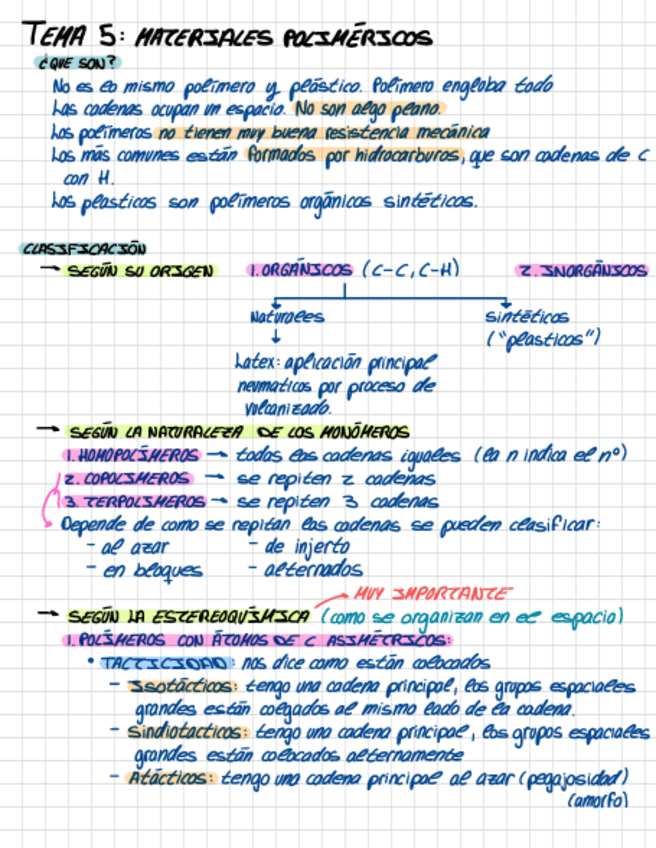 TEMA 5: MATERIALES POLIMÉRICOS
¿QUE SON?
No es lo mismo polímero y plástico. Polímero engloba todo
Las cadenas ocupan un espacio. No son algo plano.
Los polímeros no tienen muy buena resistencia mecánica
Los más comunes están formados por hidrocarburos, que son cadenas de C
con H.
Los plasticos son polímeros orgánicos sintéticos.
CLASIFICACIÓN
→ SEGÚN SU ORIGEN 1. ORGÁNICOS (C-C, C-H) 2. INORGÁNICOS
Naturales sintéticos
("plasticos")
Latex: aplicación principal
neumaticos por proceso de
vulcanizado.
→ SEGÚN LA NATURALEZA DE LOS MONÓMEROS
1. HOMOPOLÍMEROS → todas las cadenas iguales (la n indica el nº)
2. COPOLÍMEROS → se repiten 2 cadenas
3. TERPOLÍMEROS → se repiten 3 cadenas
Depende de como se repitan las cadenas se pueden clasificar:
- al azar - de injerto
- en bloques - alternados
MUY IMPORTANTE
→ SEGÚN LA ESTEREOQUÍMICA (como se organizan en el espacio)
1. POLÍMEROS CON ÁTOMOS DE C ASIMÉTRICOS:
• TACTICIDAD: nos dice como están colocados
- Isotácticos: tengo una cadena principal, los grupos espaciales
grandes están colgados al mismo lado de la cadena.
- Sindiotacticos: tengo una cadena principal, los grupos espaciales
grandes están colocados alternamente
- Atácticos: tengo una cadena principal al azar (pegajosidad)
(amorfo)